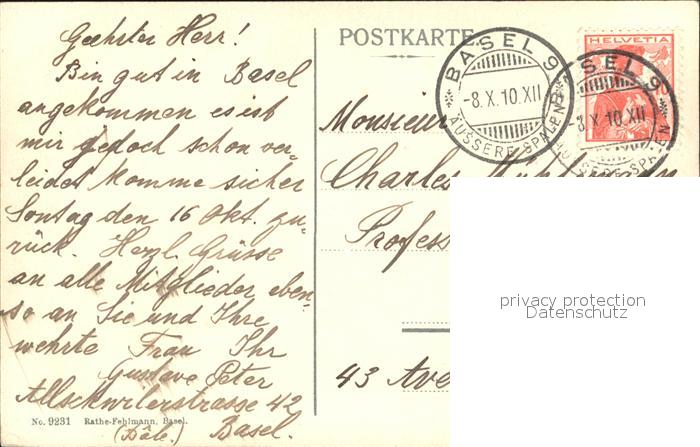 Geehrter Herr!
Bin gut in Basel
angekommen es ist
mir jedoch schon ver-
leidet komme sicher
Sontag den 16 Okt. zu-
rück. Herzl. Grüsse
an alle Mitglieder eben-
so an Sie und Ihre
wehrte Frau Ihr
Gustave Peter
Allschwilerstrasse 42
(Bâle.) Basel.
No. 9231 Rathe-Fehlmann, Basel.
POSTKARTE
HELVETIA
BASEL 9
-8.X.10.XII
ÄUSSERE-SPALEN
BASEL 9
8.X.10.XII
ÄUSSERE-SPALEN
Monsieur
Charles
Profess
43 Ave
privacy protection
Datenschutz